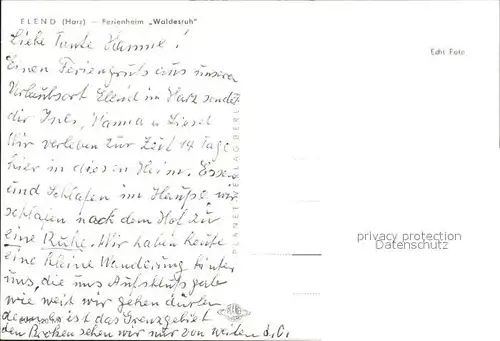 ELEND (Harz) — Ferienheim „Waldesruh"
Echt Foto
Liebe Tante Hanne!
Einen Feriengruß aus unserm
Urlaubsort Elend im Harz sendet
dir Ines, Hanna u. Liesel
Wir verleben zur Zeit 14 Tage
hier in diesen Heim. Essen
und Schlafen im Hause, wir
schlafen nach dem Hof zu
eine Ruhe. Wir haben heute
eine kleine Wanderung hinter
uns, die uns Aufschluß gab
wie weit wir gehen dürfen
denn es ist das Grenzgebiet
den Brocken sehen wir nur von weiten
PLANET-VERLAG BERLIN
privacy protection
Datenschutz